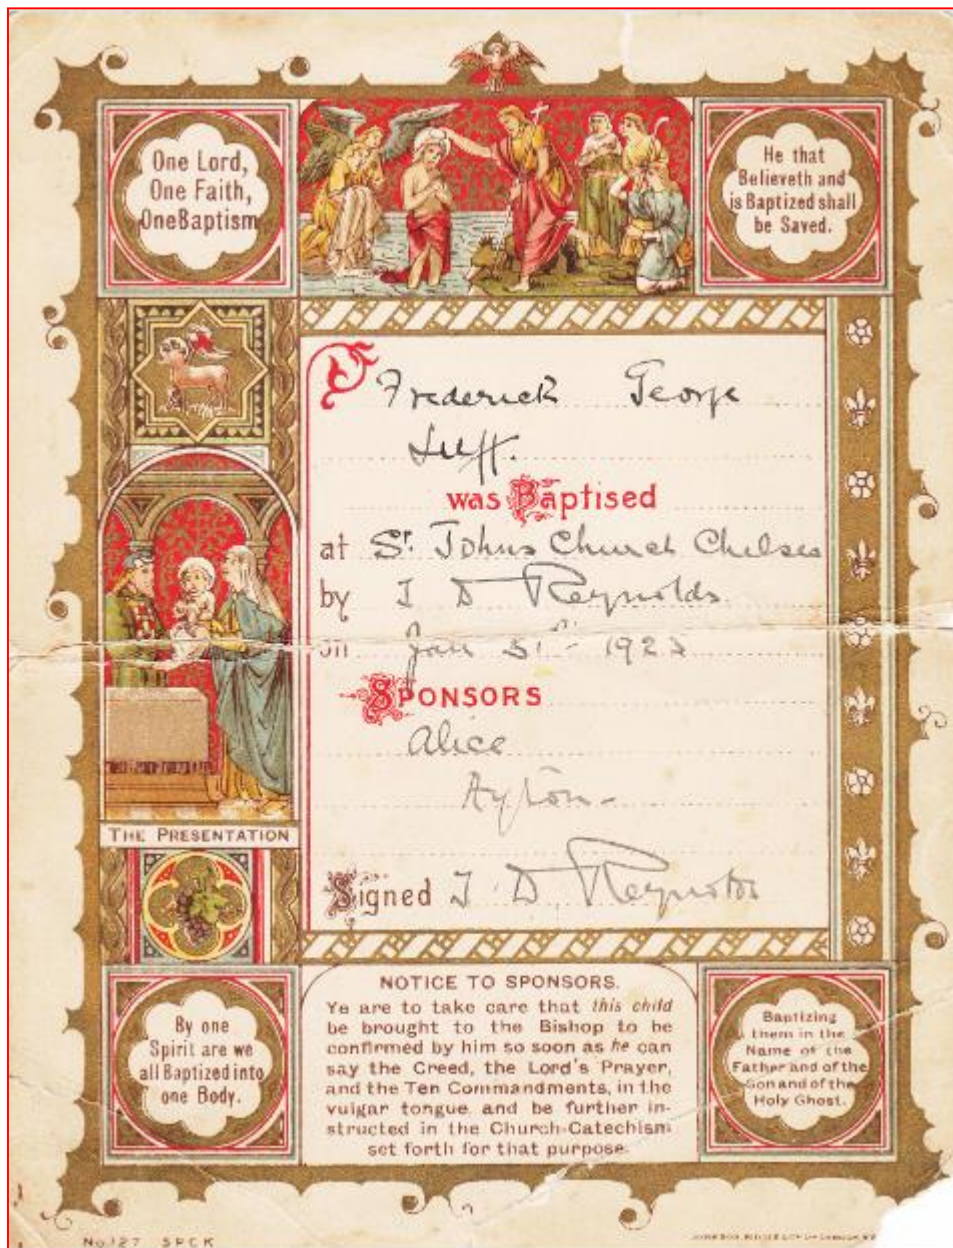 One Lord,
One Faith,
One Baptism
He that
Believeth and
is Baptized shall
be Saved.
Frederick George
Luff.
was Baptised
at St. Johns Church Chelsea
by I D Reynolds
on Jan 31st 1923
SPONSORS
Alice
Ayton
THE PRESENTATION
Signed I D Reynolds
By one
Spirit are we
all Baptized into
one Body.
NOTICE TO SPONSORS.
Ye are to take care that this child
be brought to the Bishop to be
confirmed by him so soon as he can
say the Creed, the Lord's Prayer,
and the Ten Commandments, in the
vulgar tongue and be further in-
structed in the Church-Catechism
set forth for that purpose.
Baptizing
them in the
Name of the
Father and of the
Son and of the
Holy Ghost.
No. 127 SPCK